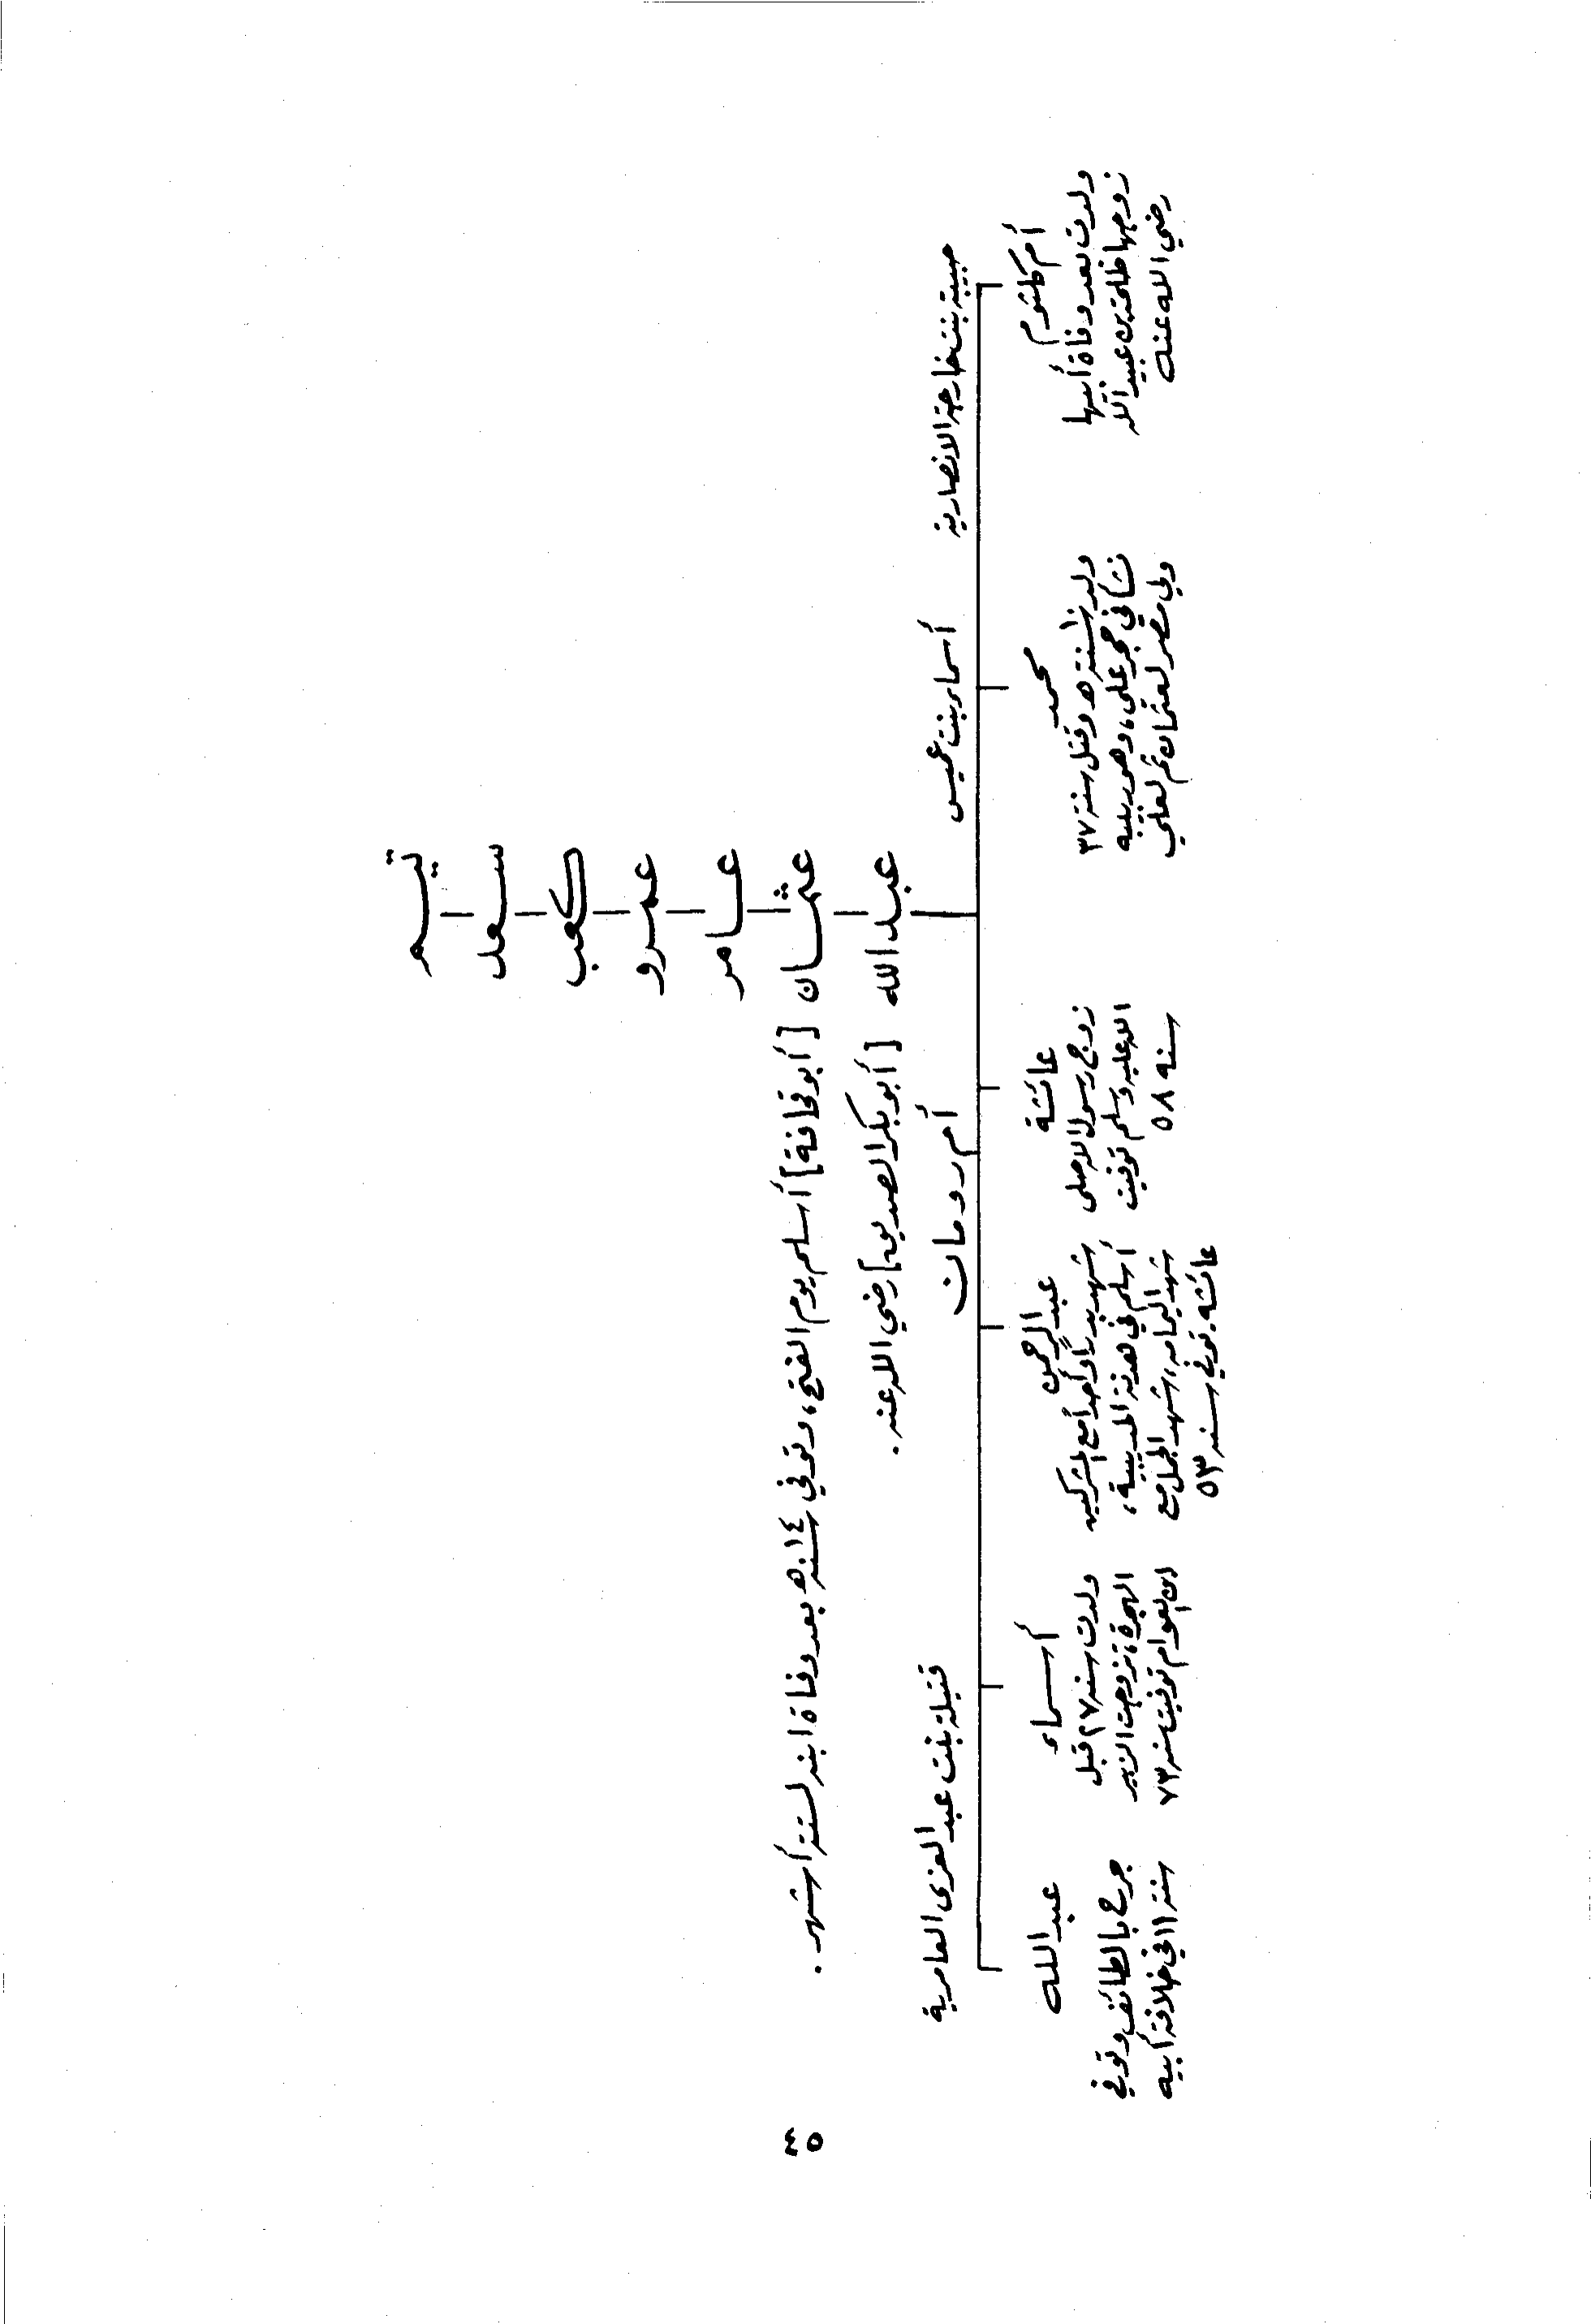 تيم
سعد
كعب
عمرو
عامر
عثمان [أبو قحافة] أسلم يوم الفتح، وتوفي سنة ١٤ هـ بعد وفاة ابنه لستة أشهر.
عبد الله [أبو بكر الصديق] رضي الله عنه.
حبيبة بنت خارجة الانصارية
أم كلثوم
ولدت بعد وفاة أبيها
زوجها طلحة بن عبيد الله
رضي الله عنه
أسماء بنت عميس
محمد
ولد سنة ١٠ هـ وقتل سنة ٣٧
نشأ في حجر علي، وهو ربيبه
ولي مصر لعثمان ثم لعلي
أم رومان
عائشة
زوج رسول الله صلى
الله عليه وسلم توفيت
سنه ٥٨
عبد الرحمن
شهد بدراً وأحداً مع المشركين
أسلم في هدنة الحديبية،
شهد اليمامه، شهد الجمل مع
عائشه. توفي سنه ٥٣
قتيلة بنت عبد العزى العامرية
أسماء
ولدت سنه ٢٧ قبل
الهجرة، تزوجت الزبير
ابن العوام توفيت سنه ٧٣
عبد الله
جرح بالطائف وتوفي
سنة ١١ في خلافة أبيه
٣٥